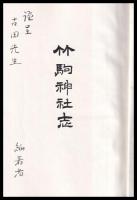 竹駒神社志
謹呈
吉田先生
編著者